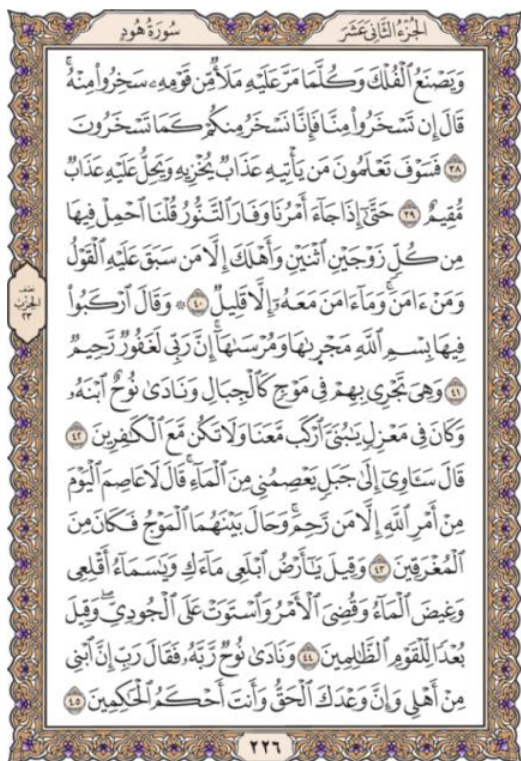 الجزء الثاني عشر
سورة هود
وَيَصْنَعُ ٱلْفُلْكَ وَكُلَّمَا مَرَّ عَلَيْهِ مَلَأٌ مِّن قَوْمِهِۦ سَخِرُوا۟ مِنْهُ ۚ
قَالَ إِن تَسْخَرُوا۟ مِنَّا فَإِنَّا نَسْخَرُ مِنكُمْ كَمَا تَسْخَرُونَ
٣٨ فَسَوْفَ تَعْلَمُونَ مَن يَأْتِيهِ عَذَابٌ يُخْزِيهِ وَيَحِلُّ عَلَيْهِ عَذَابٌ
مُّقِيمٌ ٣٩ حَتَّىٰٓ إِذَا جَآءَ أَمْرُنَا وَفَارَ ٱلتَّنُّورُ قُلْنَا ٱحْمِلْ فِيهَا
مِن كُلٍّ زَوْجَيْنِ ٱثْنَيْنِ وَأَهْلَكَ إِلَّا مَن سَبَقَ عَلَيْهِ ٱلْقَوْلُ
وَمَنْ ءَامَنَ ۚ وَمَآ ءَامَنَ مَعَهُۥٓ إِلَّا قَلِيلٌ ٤٠ ۞ وَقَالَ ٱرْكَبُوا۟
نصف
الحزب
٢٣
فِيهَا بِسْمِ ٱللَّهِ مَجْر۪ىٰهَا وَمُرْسَىٰهَآ ۚ إِنَّ رَبِّى لَغَفُورٌ رَّحِيمٌ
٤١ وَهِىَ تَجْرِى بِهِمْ فِى مَوْجٍ كَٱلْجِبَالِ وَنَادَىٰ نُوحٌ ٱبْنَهُۥ
وَكَانَ فِى مَعْزِلٍ يَٰبُنَىَّ ٱرْكَب مَّعَنَا وَلَا تَكُن مَّعَ ٱلْكَٰفِرِينَ ٤٢
قَالَ سَـَٔاوِىٓ إِلَىٰ جَبَلٍ يَعْصِمُنِى مِنَ ٱلْمَآءِ ۚ قَالَ لَا عَاصِمَ ٱلْيَوْمَ
مِنْ أَمْرِ ٱللَّهِ إِلَّا مَن رَّحِمَ ۚ وَحَالَ بَيْنَهُمَا ٱلْمَوْجُ فَكَانَ مِنَ
ٱلْمُغْرَقِينَ ٤٣ وَقِيلَ يَٰٓأَرْضُ ٱبْلَعِى مَآءَكِ وَيَٰسَمَآءُ أَقْلِعِى
وَغِيضَ ٱلْمَآءُ وَقُضِىَ ٱلْأَمْرُ وَٱسْتَوَتْ عَلَى ٱلْجُودِىِّ ۖ وَقِيلَ
بُعْدًا لِّلْقَوْمِ ٱلظَّٰلِمِينَ ٤٤ وَنَادَىٰ نُوحٌ رَّبَّهُۥ فَقَالَ رَبِّ إِنَّ ٱبْنِى
مِنْ أَهْلِى وَإِنَّ وَعْدَكَ ٱلْحَقُّ وَأَنتَ أَحْكَمُ ٱلْحَٰكِمِينَ ٤٥
٢٢٦